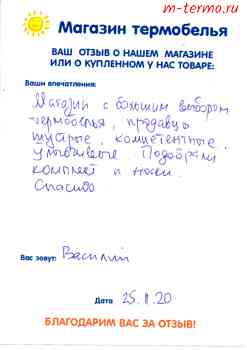 m-termo.ru
Магазин термобелья
ВАШ ОТЗЫВ О НАШЕМ МАГАЗИНЕ
ИЛИ О КУПЛЕННОМ У НАС ТОВАРЕ:
Ваши впечатления:
Магазин с большим выбором
термобелья, продавцы
шустрые, компетентные,
учтивые. Подобрали
комплект и носки.
Спасибо
Вас зовут: Василий
Дата 25.11.20
БЛАГОДАРИМ ВАС ЗА ОТЗЫВ!